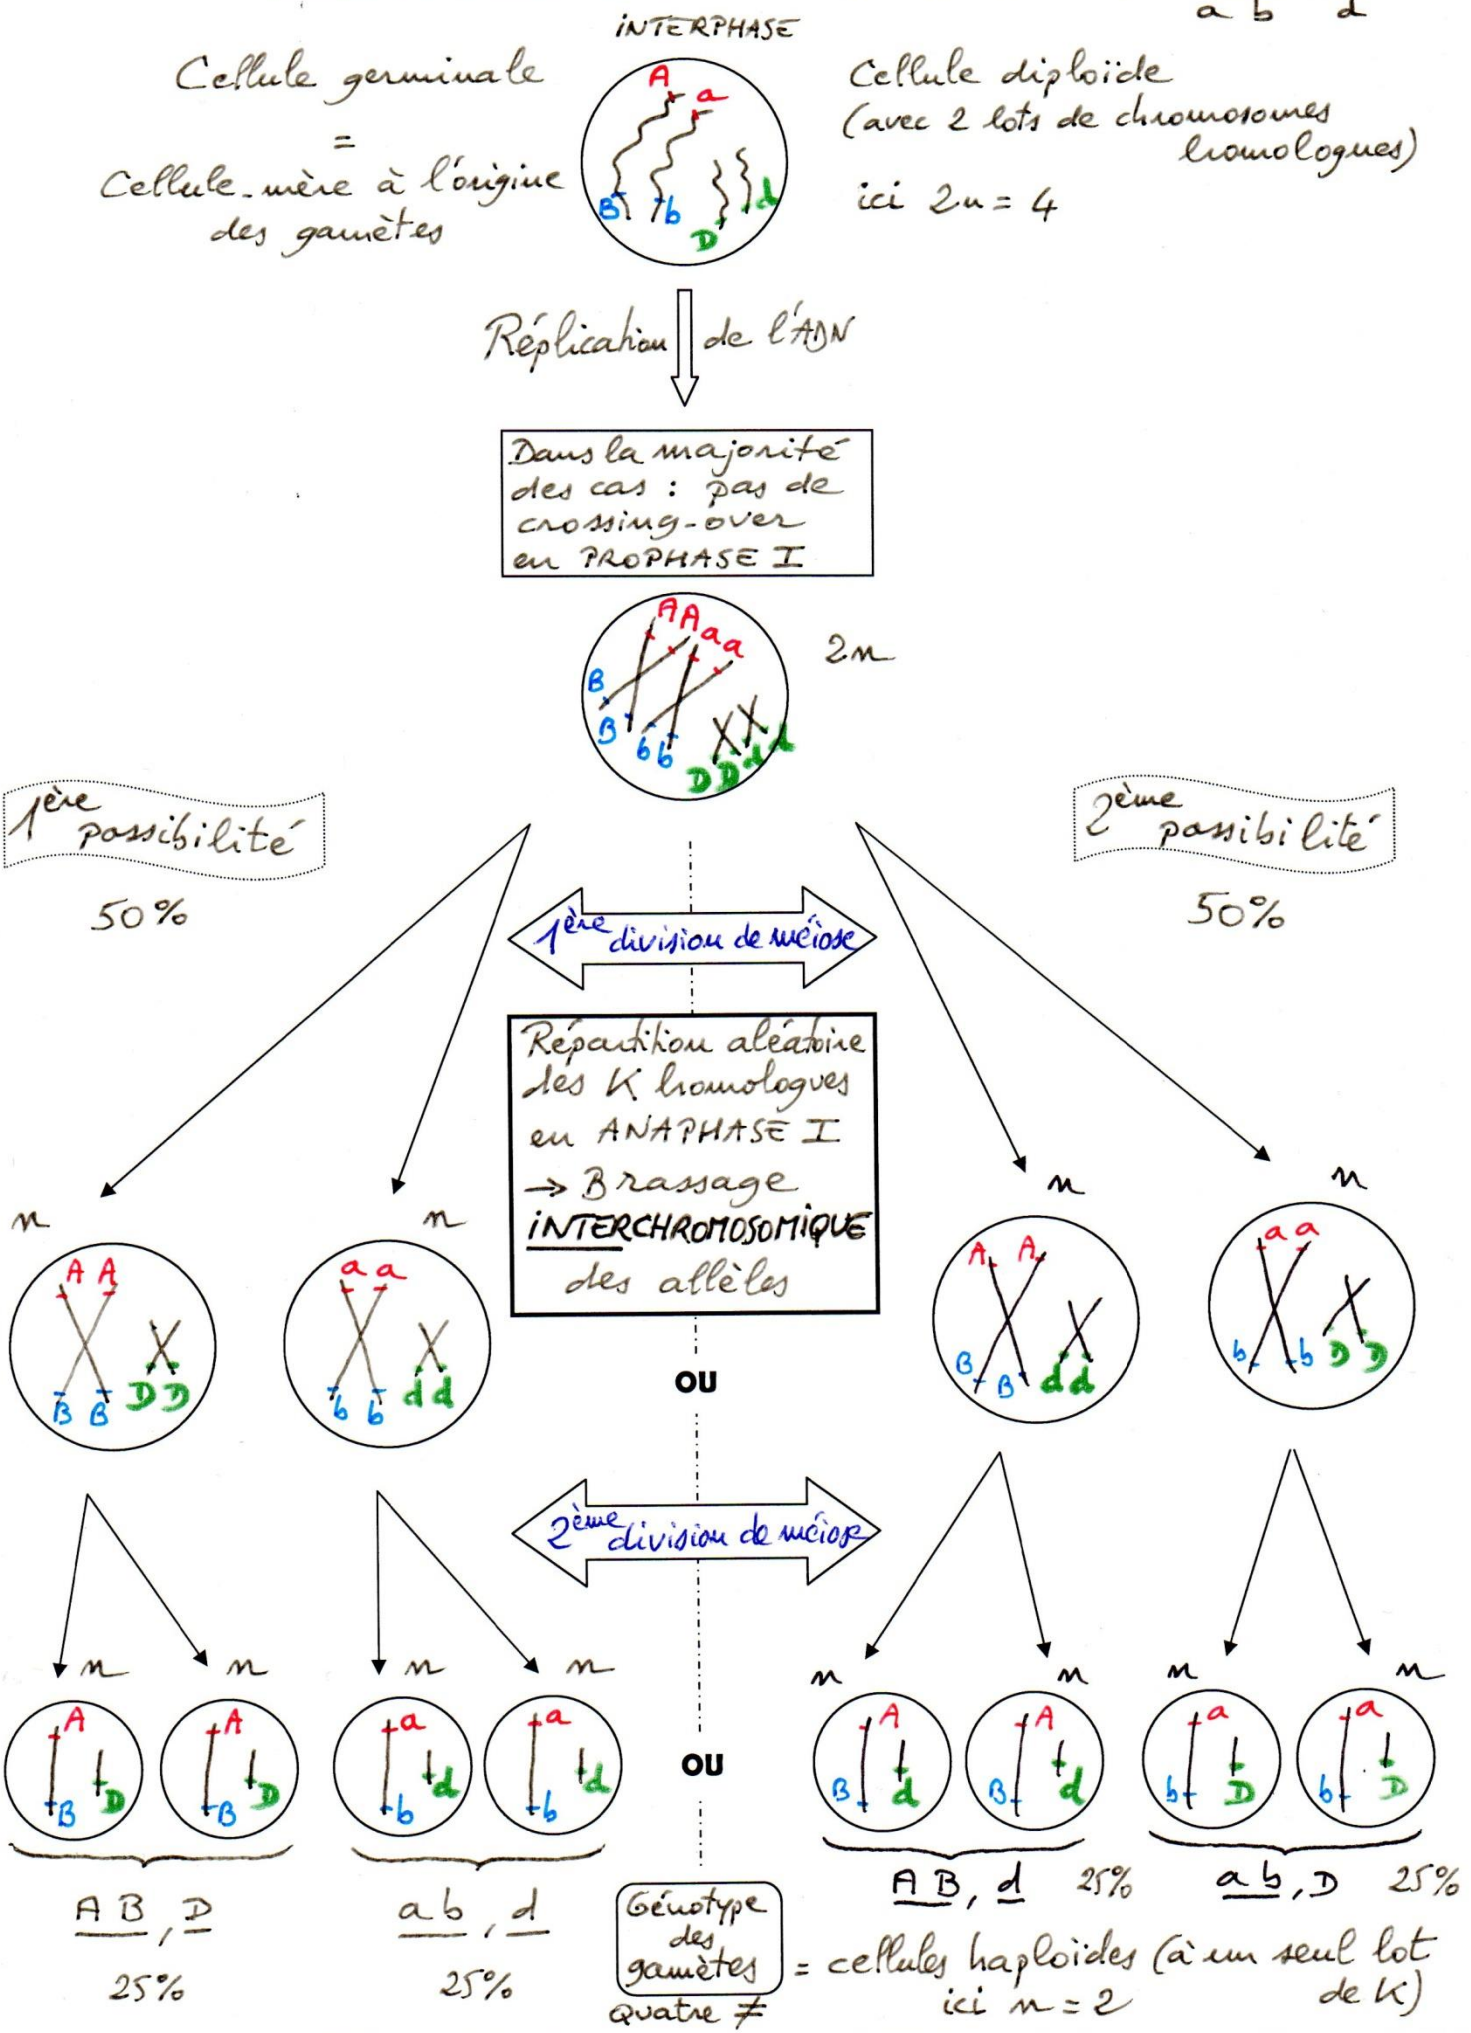 a b d
INTERPHASE
Cellule germinale
=
Cellule-mère à l'origine
des gamètes
A a
B b D d
Cellule diploïde
(avec 2 lots de chromosomes
homologues)
ici 2n = 4
Réplication de l'ADN
Dans la majorité
des cas : pas de
crossing-over
en PROPHASE I
A A a a
B
B b b
D D d d
2n
1ère
possibilité
50%
2ème
possibilité
50%
1ère division de méiose
Répartition aléatoire
des K homologues
en ANAPHASE I
→ Brassage
INTERCHROMOSOMIQUE
des allèles
n
A A
B B D D
n
a a
b b d d
OU
n
A A
B B d d
n
a a
b b D D
2ème division de méiose
n n n n
A A a a
B D B D b d b d
OU
n n n n
A A a a
B d B d b D b D
A B , D
25%
a b , d
25%
A B , d 25%
a b , D 25%
Génotype
des
gamètes
quatre ≠
= cellules haploïdes (à un seul lot
ici n = 2 de K)